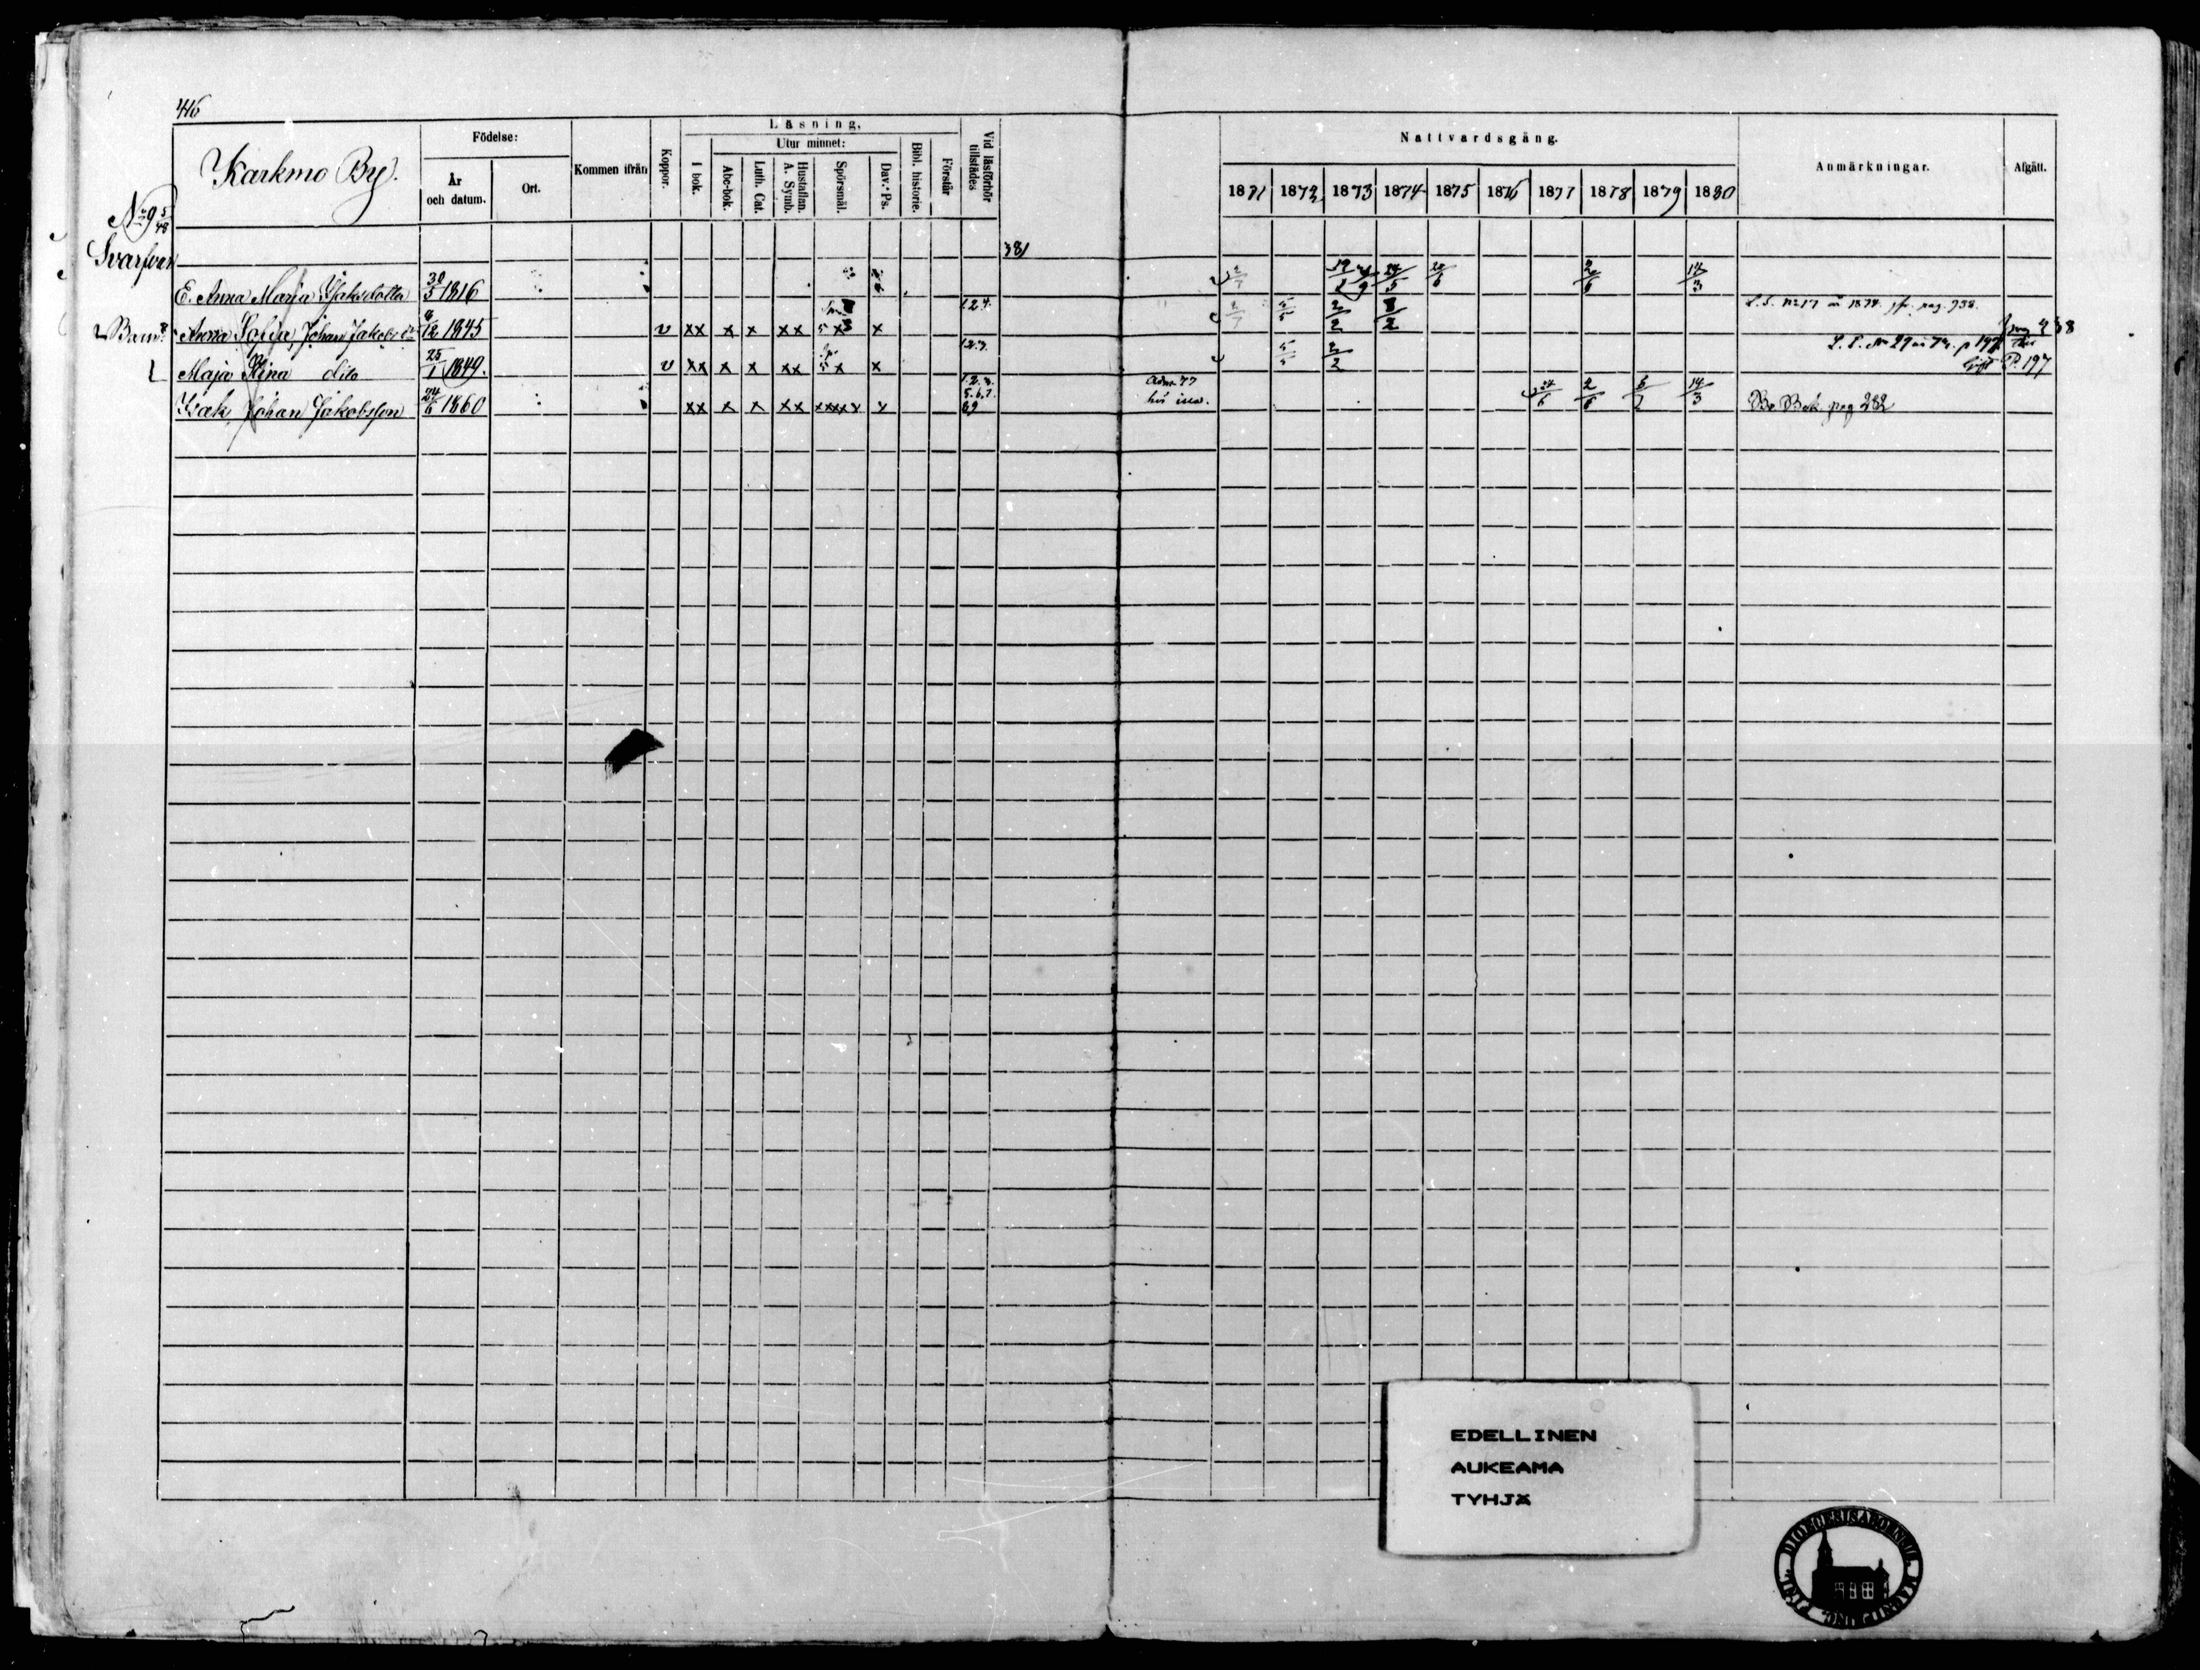 416
Karkmo By.
Födelse:
År och datum.
Ort.
Kommen ifrån
Koppor.
Läsning,
I bok.
Utur minnet:
Abc-bok.
Luth. Cat.
Hustaflan. A. Symb.
Spörsmål.
Dav:s Ps.
Bibl. historie.
Förstår
Vid läsförhör tillstädes
Nattvardsgång.
1871 1872 1873 1874 1875 1876 1877 1878 1879 1880
Anmärkningar.
Afgått.
No 9 5/48
Svarfvar
381
E. Anna Maria Jakobsdotter 30/5 1816 2/7 24/5 2/6 14/3
Anna Sofia Johan Jakobs dr 6/12 1845 v xx x x xx 5 x x 1.2.4. 2/7 5/5 2/2 8/2 L.S. No 17 m 1874. jfr. pag. 938.
Maja Stina dito 25/1 1849. v xx x x xx 5 x x 1.2.3. 5/5 2/2 L.S. No 29 m 74. p 197. P. 197
Isak Johan Jakobsson 24/6 1860 xx x x xx xxxx x 1.2.3. 5.6.7. 89 Adm. 77 24/6 2/6 14/3 Be Bok pag 282
EDELLINEN
AUKEAMA
TYHJÄ